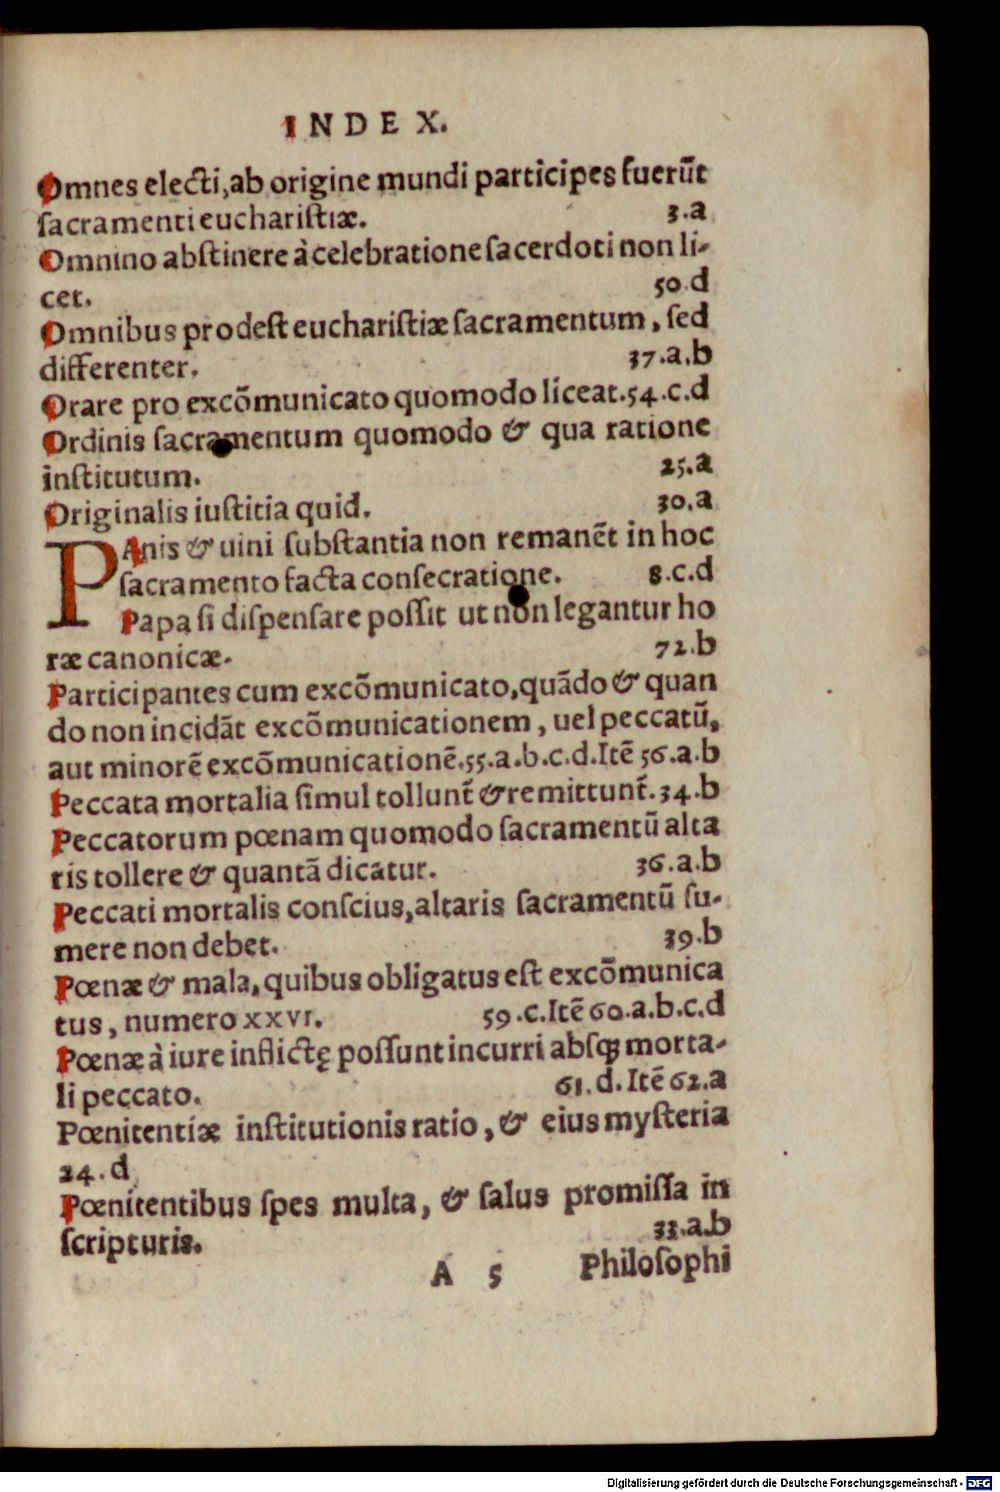 INDEX.
Omnes electi, ab origine mundi participes fuerūt
ſacramenti euchariſtiæ. 3.a
Omnino abſtinere à celebratione ſacerdoti non li-
cet. 50.d
Omnibus prodeſt euchariſtiæ ſacramentum, ſed
differenter. 37.a.b
Orare pro excōmunicato quomodo liceat. 54.c.d
Ordinis ſacramentum quomodo & qua ratione
inſtitutum. 25.a
Originalis iuſtitia quid. 30.a
PAnis & uini ſubſtantia non remanēt in hoc
ſacramento facta conſecratione. 8.c.d
Papa ſi diſpenſare poſſit ut non legantur ho
ræ canonicæ. 72.b
Participantes cum excōmunicato, quādo & quan
do non incidāt excōmunicationem, uel peccatū,
aut minorē excōmunicationē. 55.a.b.c.d. Itē 56.a.b
Peccata mortalia ſimul tollunt̄ & remittunt̄. 34.b
Peccatorum pœnam quomodo ſacramentū alta
ris tollere & quantā dicatur. 36.a.b
Peccati mortalis conſcius, altaris ſacramentū ſu-
mere non debet. 39.b
Pœnæ & mala, quibus obligatus eſt excōmunica
tus, numero xxvi. 59.c. Itē 60.a.b.c.d
Pœnæ à iure inflictę poſſunt incurri abſqꝫ morta-
li peccato. 61.d. Itē 62.a
Pœnitentiæ inſtitutionis ratio, & eius myſteria
24.d
Pœnitentibus ſpes multa, & ſalus promiſſa in
ſcripturis. 33.a.b
A 5 Philoſophi
Digitalisierung gefördert durch die Deutsche Forschungsgemeinschaft - DFG